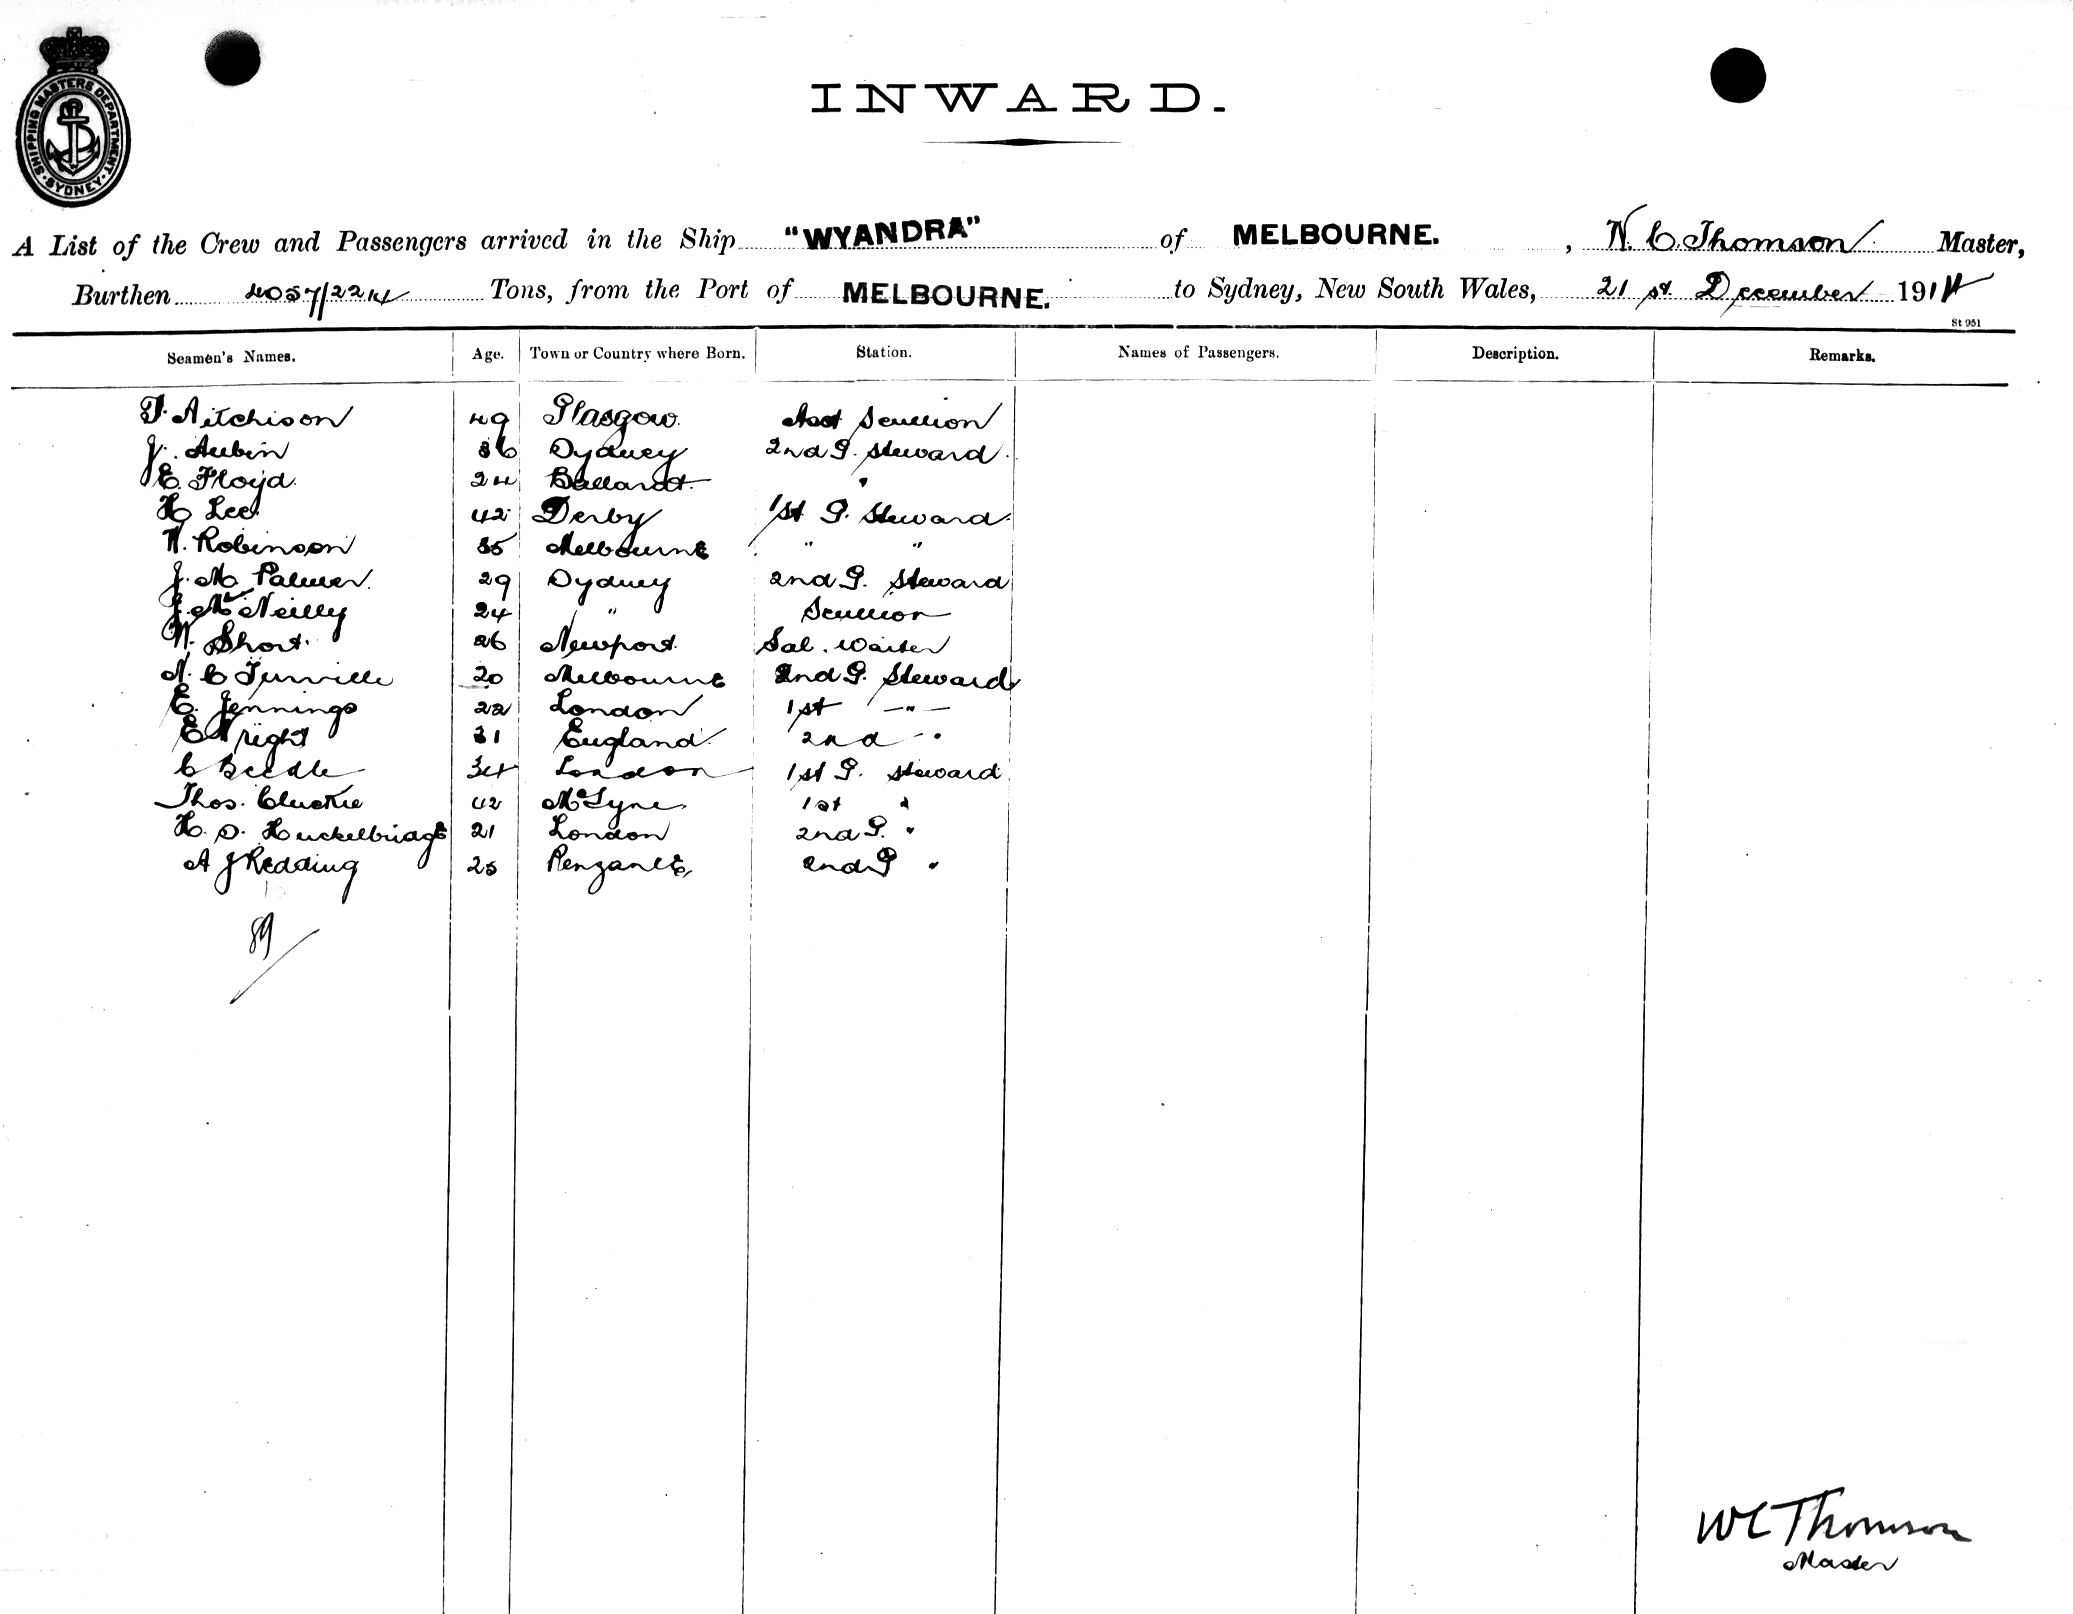 SHIPPING MASTERS DEPARTMENT. SYDNEY.
INWARD.
A List of the Crew and Passengers arrived in the Ship "WYANDRA" of MELBOURNE. , W. C. Thomson Master,
Burthen 4057/2214 Tons, from the Port of MELBOURNE. to Sydney, New South Wales, 21st December 1914
St 951
Seamen's Names. Age. Town or Country where Born. Station. Names of Passengers. Description. Remarks.
T. Aitchison 49 Glasgow. Asst Scullion
J. Aubin 36 Sydney 2nd G. Steward.
E. Floyd. 24 Ballarat. "
H Lee. 42 Derby 1st G. Steward.
W. Robinson 35 Melbourne " "
J. M. Palmer. 29 Sydney 2nd G. Steward
J. McNeilly 24 " Scullion
W. Short. 26 Newport. Sal. Waiter
N. C Turville 20 Melbourne 2nd G. Steward
E. Jennings 22 London 1st -"-
E Wright 31 England. 2nd - "
C Beedle 34 London 1st G. Steward
Thos. Cluckie 42 1st "
H. S. Huckelbridge 21 London 2nd G. "
A J Redding 25 Penzance, 2nd G "
89/
W C Thomson
Master